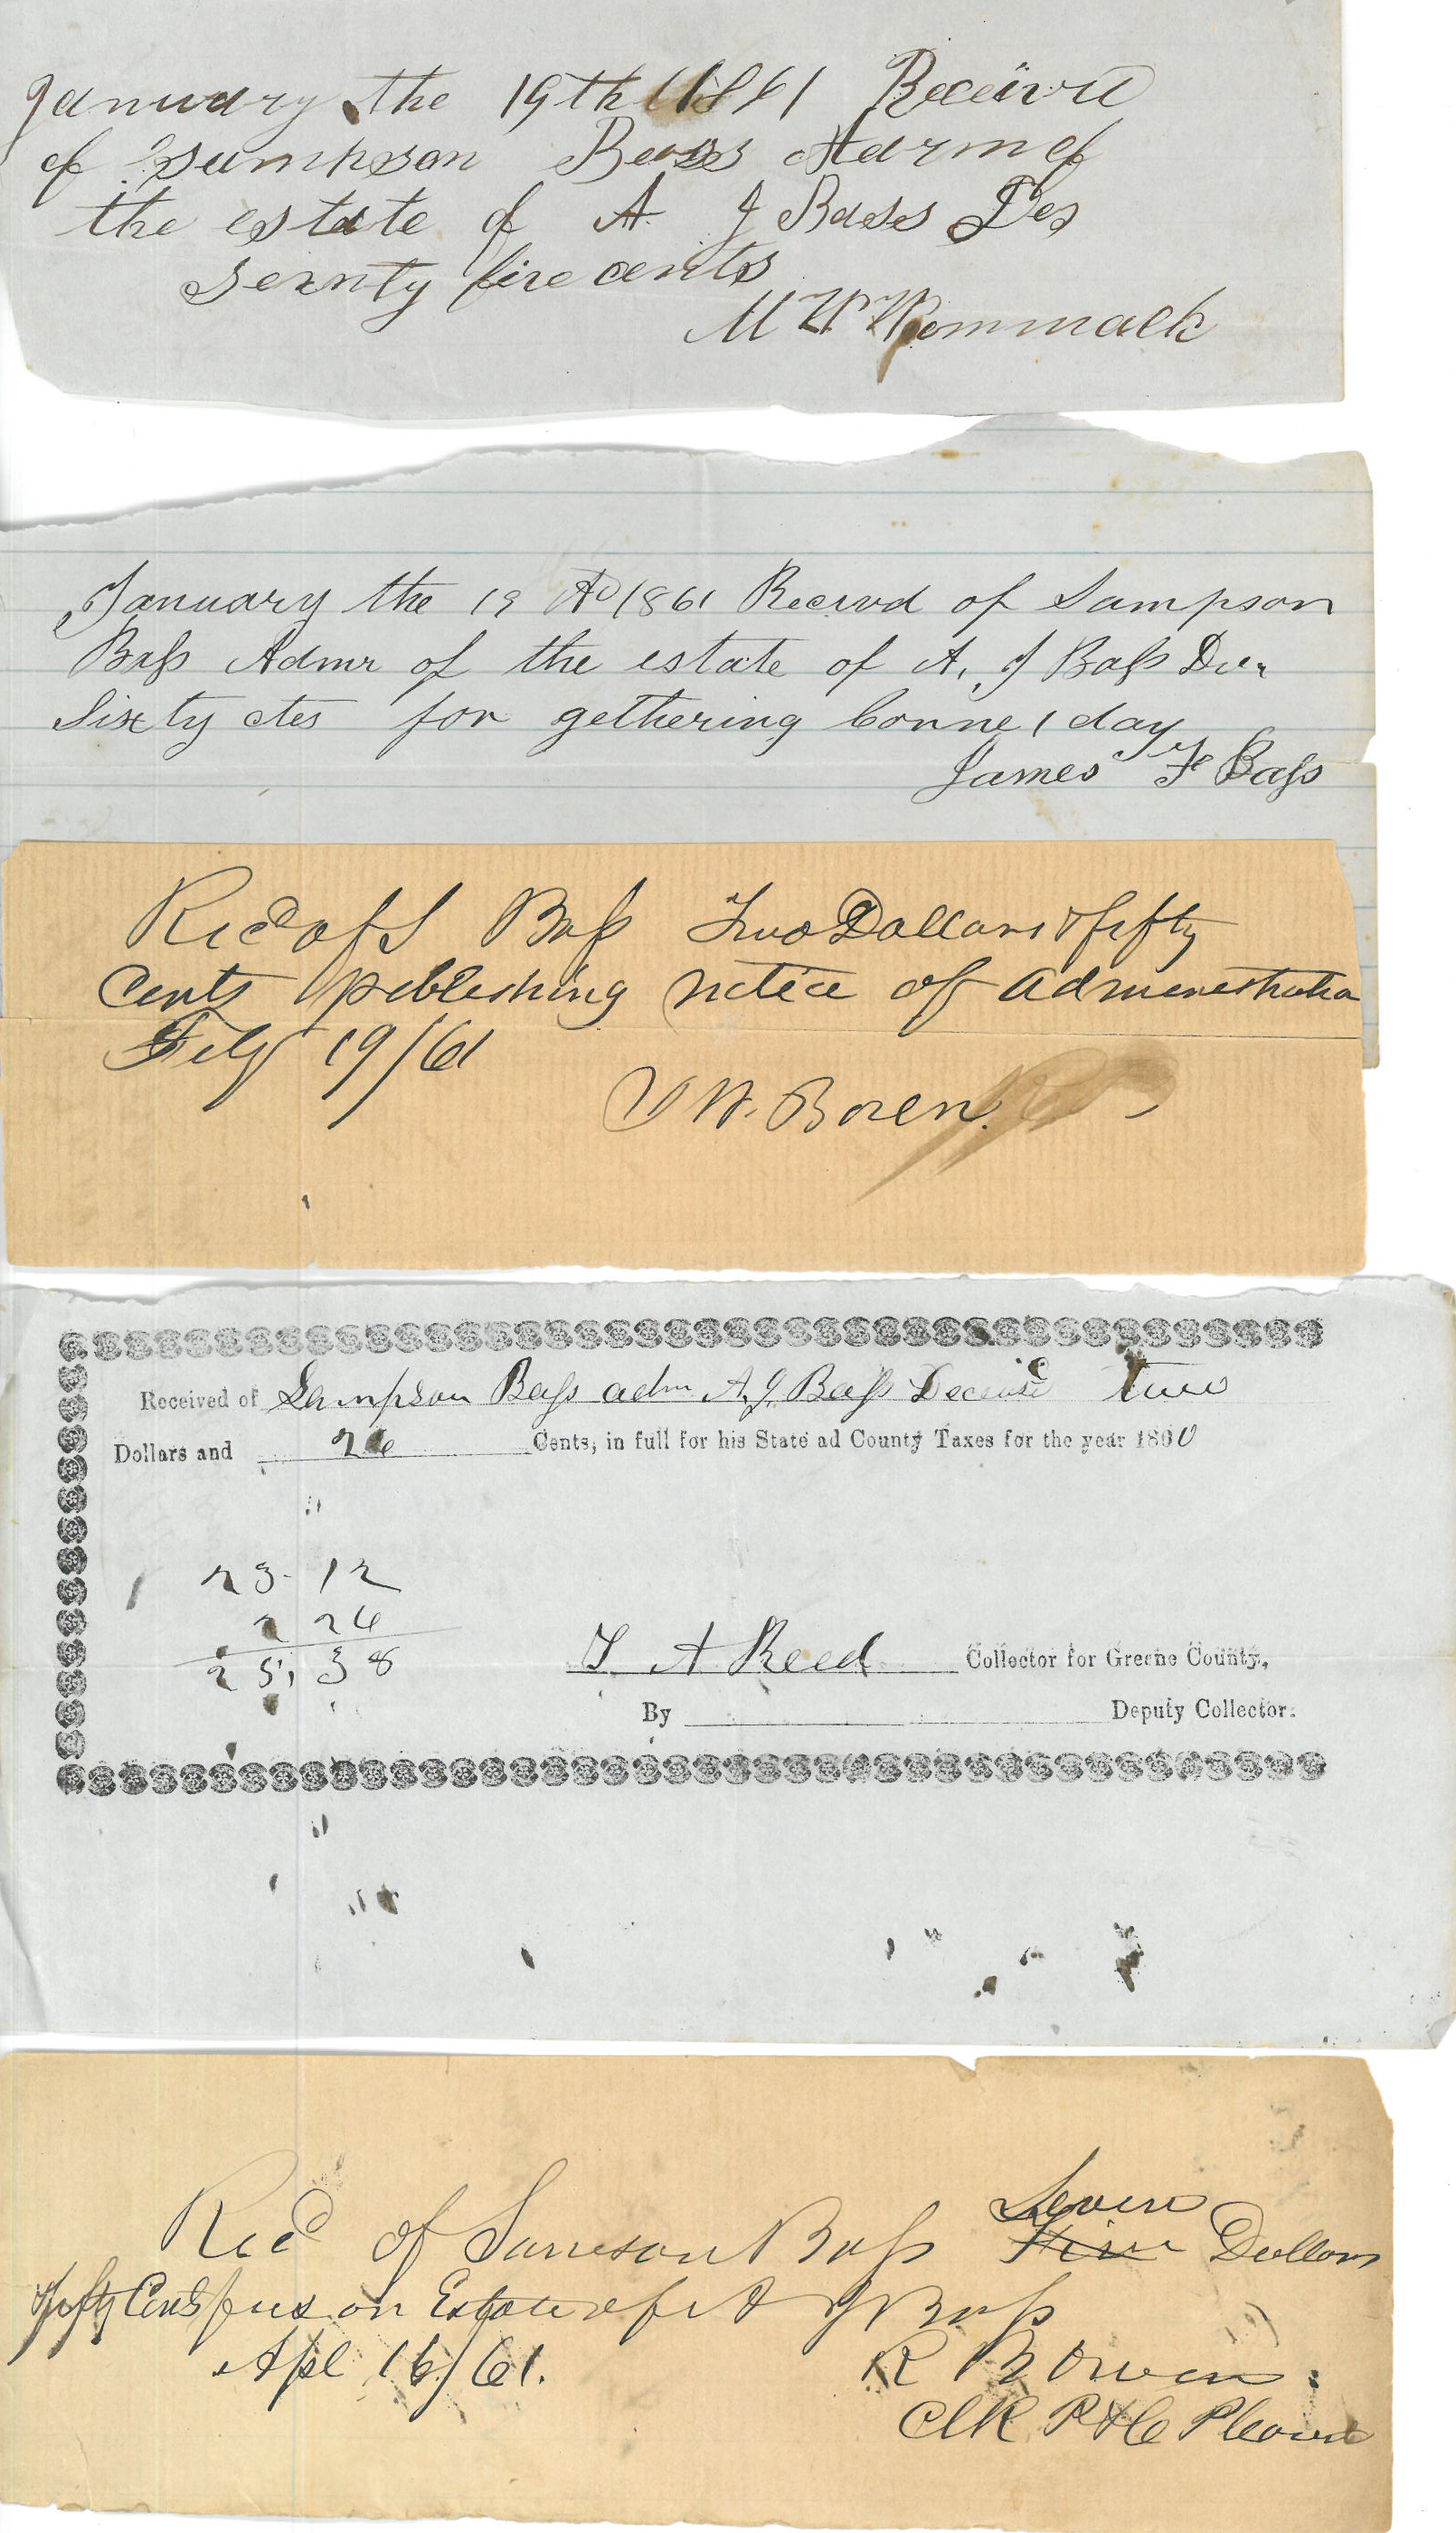 January the 19th 1861 Receivd
of Sampson Bass Adrm of
the estate of A J Bass Des
sevnty five cents
M W Wommack
January the 19 AD 1861 Recevd of Sampson
Bass Admr of the estate of A. J Bass
Sixty cts for gethering Corne 1 day
James F Bass
Recd of S Bass Two Dollars & fifty
Cents publishing notice of administration
Feby 19/61
W. Boren
Received of Sampson Bass adm A. J. Bass Deceased two
Dollars and 26 Cents, in full for his State ad County Taxes for the year 1860
23. 12
2 26
25, 38
J A Reed Collector for Greene County,
By Deputy Collector.
Recd of Samson Bass Seven Dollars
& fifty Cents fees on Estate of A J Bass
Apl 16/61.
R B Owen
Clk P & C P Court